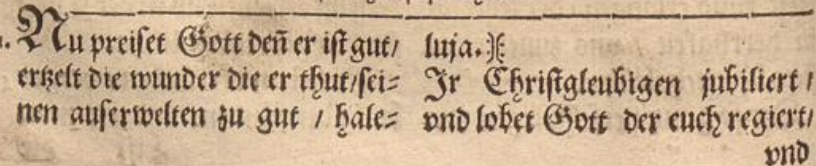 Nu preiset Gott deñ er ist gut/
ertzelt die wunder die er thut/sei⸗
nen auserwelten zu gut / hale⸗
luja.
Jr Christgleubigen jubiliert /
vnd lobet Gott der euch regiert/
vnd